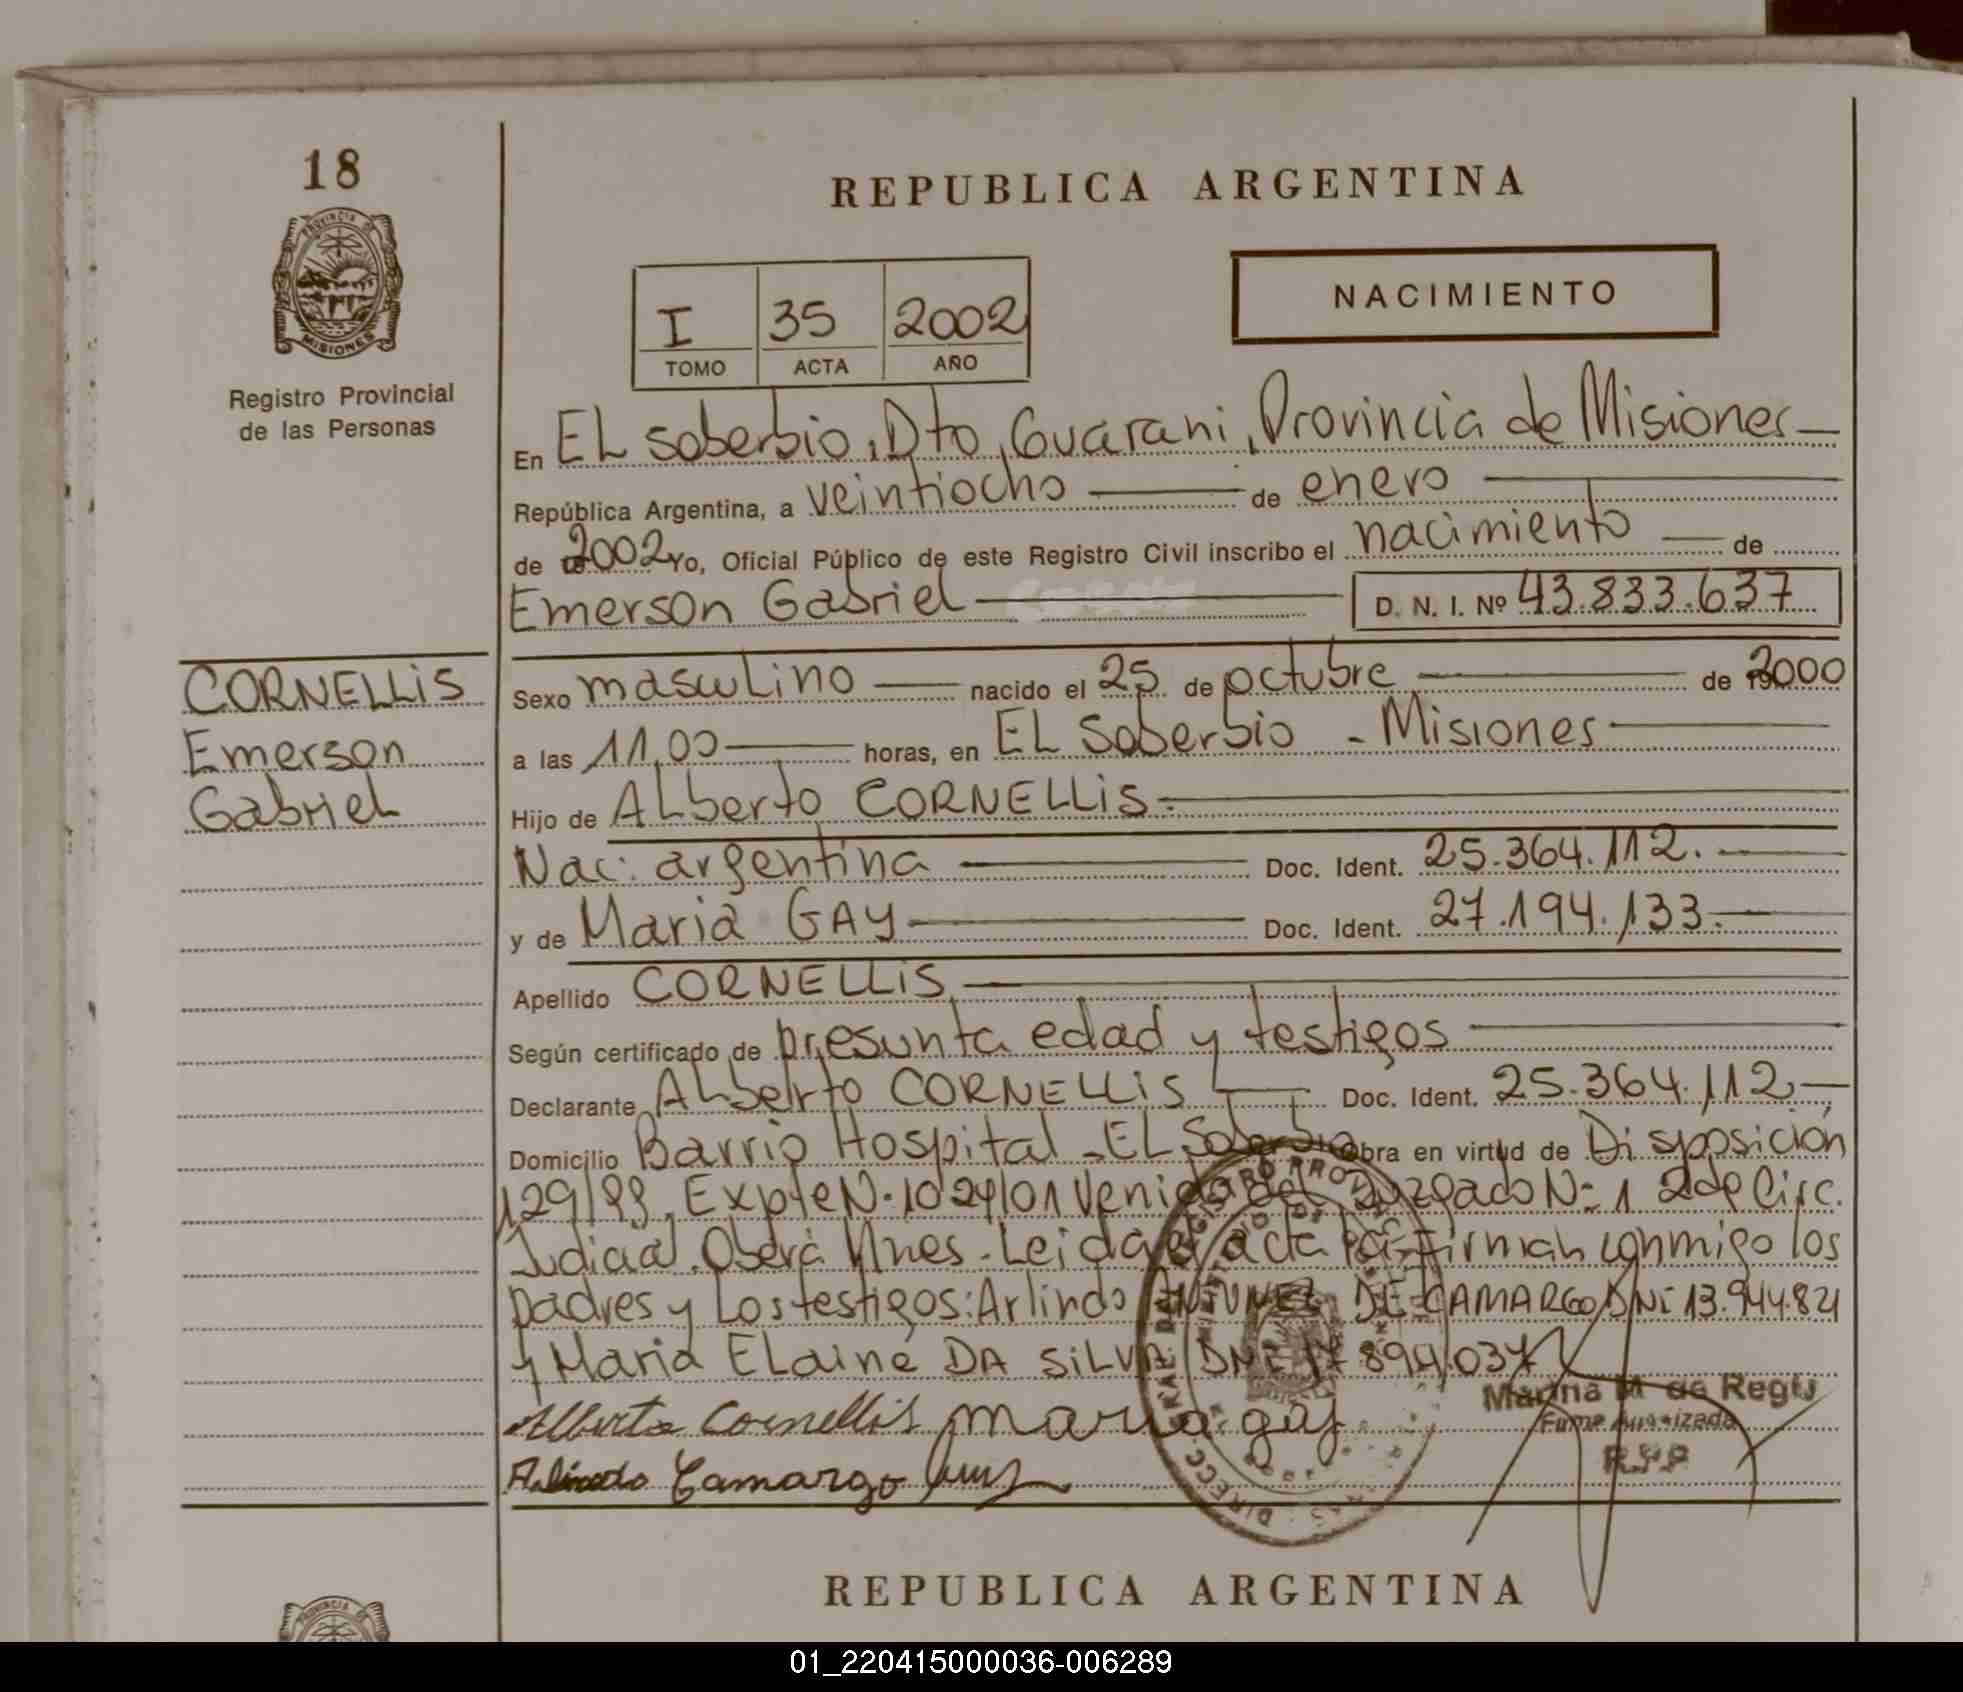 18
REPUBLICA ARGENTINA
PROVINCIA DE
MISIONES
Registro Provincial
de las Personas
I 35 2002
TOMO ACTA AÑO
NACIMIENTO
En EL soberbio, Dto, Guarani, Provincia de Misiones
República Argentina, a veintiocho de enero
de 2002 Yo, Oficial Público de este Registro Civil inscribo el nacimiento de
Emerson Gabriel D. N. I. Nº 43.833.637
CORNELLIS
Emerson
Gabriel
Sexo masculino nacido el 25 de octubre de 2000
a las 11,00 horas, en EL Soberbio - Misiones
Hijo de ALberto CORNELLIS.
Nac: argentina Doc. Ident. 25.364.112.
y de Maria GAY Doc. Ident. 27.194.133.
Apellido CORNELLIS
Según certificado de presunta edad y testigos
Declarante ALberto CORNELLIS Doc. Ident. 25.364.112
Domicilio Barrio Hospital - EL Soberbio Obra en virtud de Disposición
129/99, Expte N: 1029/01 Venida del Juzgado N: 1 2da Circ.
Judicial. Oberá Mnes - Leida el acta firman conmigo los
padres y Los testigos: Arlindo DE CAMARGO DNI: 13.944.821
y Maria ELaine DA SILVA DNI: 17.899.037
Alberto Cornellis maria gay
Arlindo Camargo
Marina M. de
Firma Autorizada
R.P.P
REPUBLICA ARGENTINA
PROVINCIA DE
01_220415000036-006289